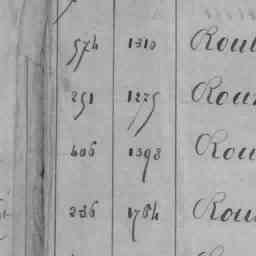 574 1310 Rou
251 1225 Rou
406 1398 Rou
236 1764 Rou